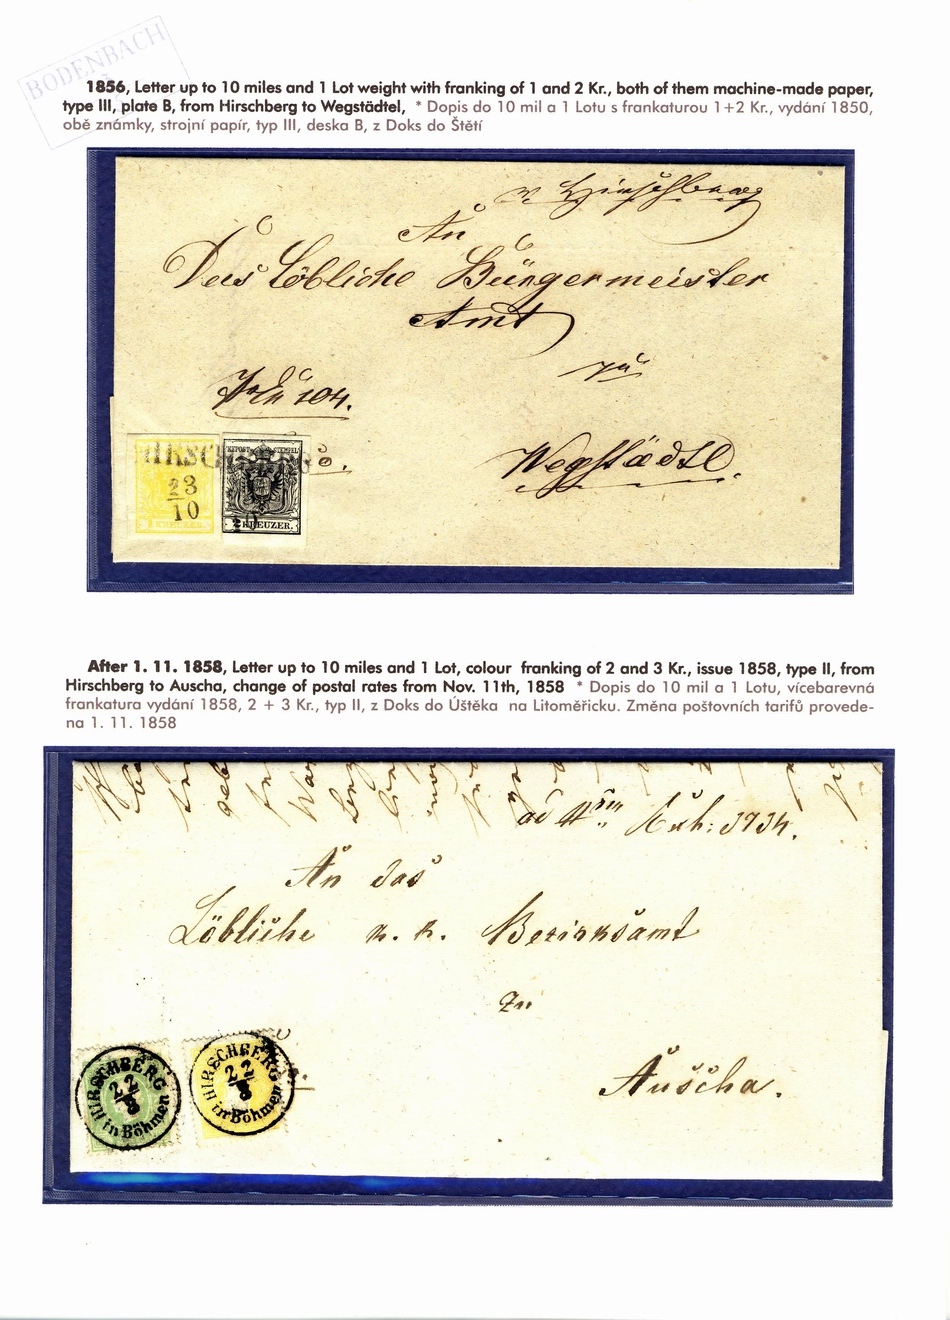 BODENBACH
1856, Letter up to 10 miles and 1 Lot weight with franking of 1 and 2 Kr., both of them machine-made paper,
type III, plate B, from Hirschberg to Wegstädtel, * Dopis do 10 mil a 1 Lotu s frankaturou 1+2 Kr., vydání 1850,
obě známky, strojní papír, typ III, deska B, z Doks do Štětí
v. Hirschberg
An
Das Löbliche Bürgermeister
Amt
zu
104.
Wegstädtl.
HIRSCHBERG
23
10
1 KREUZER.
KK POST-STEMPEL
2 KREUZER.
After 1. 11. 1858, Letter up to 10 miles and 1 Lot, colour franking of 2 and 3 Kr., issue 1858, type II, from
Hirschberg to Auscha, change of postal rates from Nov. 11th, 1858 * Dopis do 10 mil a 1 Lotu, vícebarevná
frankatura vydání 1858, 2 + 3 Kr., typ II, z Doks do Úštěka na Litoměřicku. Změna poštovních tarifů provede-
na 1. 11. 1858
ad 3734.
An das
Löbliche k. k. Bezirksamt
zu
Auscha.
HIRSCHBERG
22
8
in Böhmen
HIRSCHBERG
22
8
in Böhmen